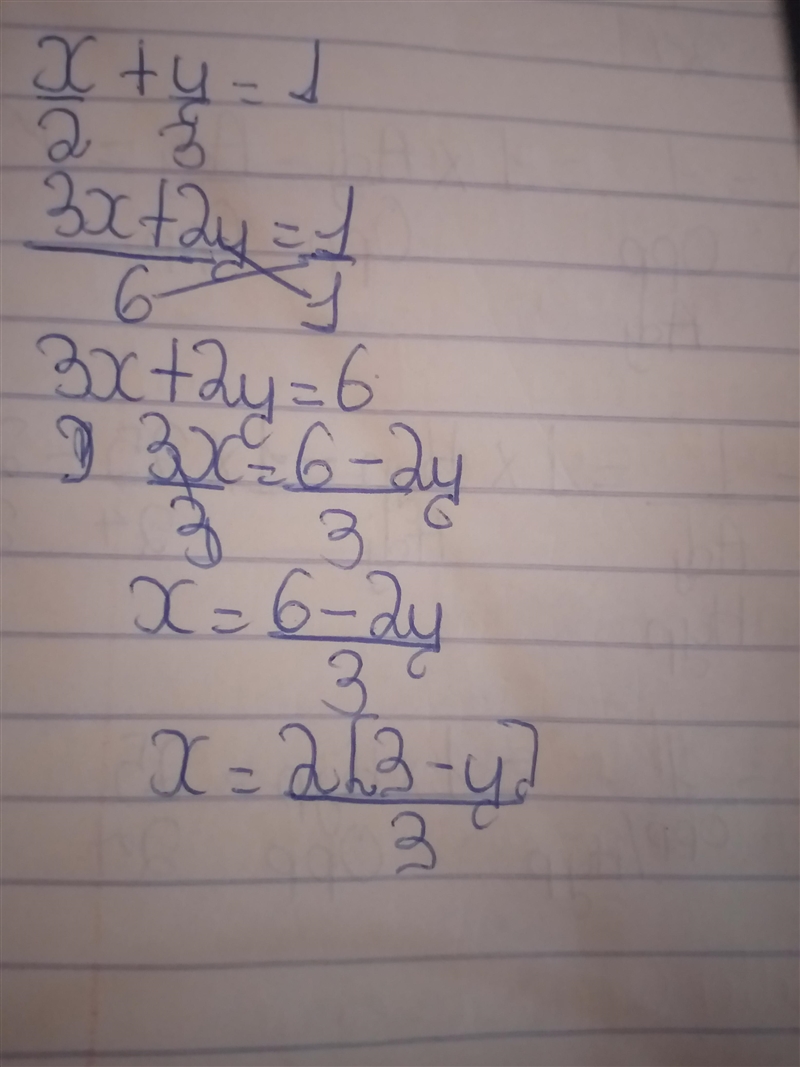 x/2 + y/3 = 1
3x+2y/6 = 1/1
3x+2y=6
3x/3 = 6-2y/3
x = 6-2y/3
x = 2[3-y]/3